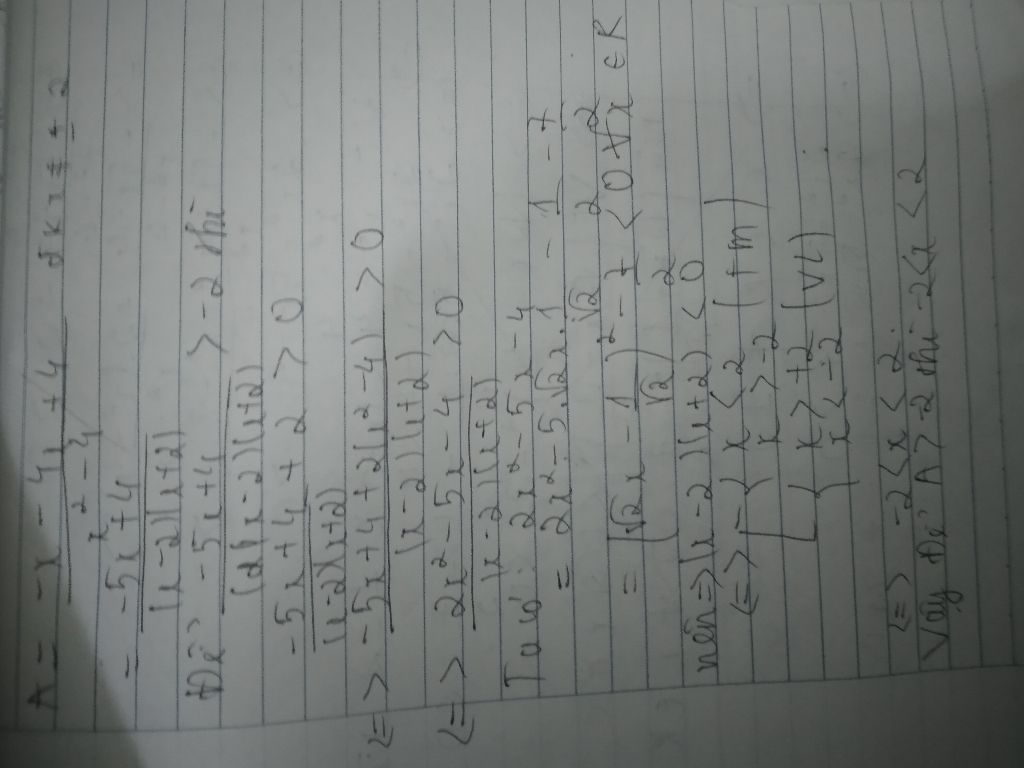 A = -x - 4x + 4 ĐK x ≠ ± 2
x² - 4
= -5x + 4
(x-2)(x+2)
Để > -5x + 4 > -2 thì
(x-2)(x+2)
-5x + 4 + 2 > 0
(x-2)(x+2)
<=> -5x + 4 + 2(x² - 4) > 0
(x-2)(x+2)
<=> 2x² - 5x - 4 > 0
(x-2)(x+2)
Ta có: 2x² - 5x - 4
= 2x² - 5√2x . 1/√2 - 1/2 - 7/2
= (√2x - 1/√2)² - 7/2 < 0 ∀x ∈ R
nên => (x-2)(x+2) < 0
<=> [ { x < 2
x > -2 (tm)
[ { x > +2
x < -2 (VL)
<=> -2 < x < 2.
Vậy Để A > -2 thì -2 < x < 2